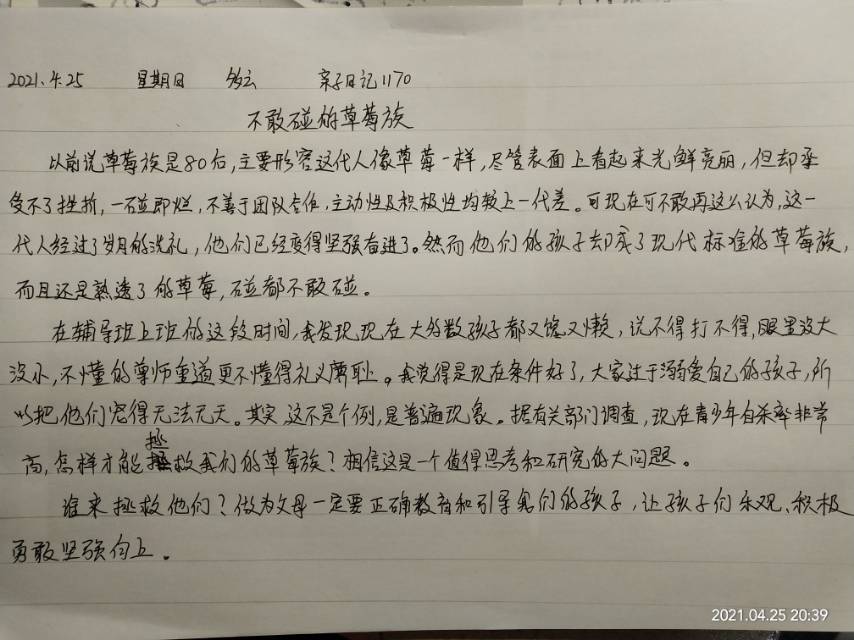 2021.4.25 星期日 多云 亲子日记1170
不敢碰的草莓族
以前说草莓族是80后,主要形容这代人像草莓一样,尽管表面上看起来光鲜亮丽,但却承
受不了挫折,一碰即烂,不善于团队合作,主动性及积极性均较上一代差。可现在可不敢再这么认为,这一
代人经过了岁月的洗礼,他们已经变得坚强奋进了。然而他们的孩子却成了现代标准的草莓族,
而且还是熟透了的草莓,碰都不敢碰。
在辅导班上班的这段时间,我发现现在大多数孩子都又馋又懒,说不得打不得,眼里没大
没小,不懂的尊师重道更不懂得礼义廉耻。我觉得是现在条件好了,大家过于溺爱自己的孩子,所
以把他们宠得无法无天。其实这不是个例,是普遍现象。据有关部门调查,现在青少年自杀率非常
高,怎样才能拯救我们的草莓族?相信这是一个值得思考和研究的大问题。
谁来拯救他们?做为父母一定要正确教育和引导我们的孩子,让孩子们乐观、积极
勇敢坚强向上。
2021.04.25 20:39